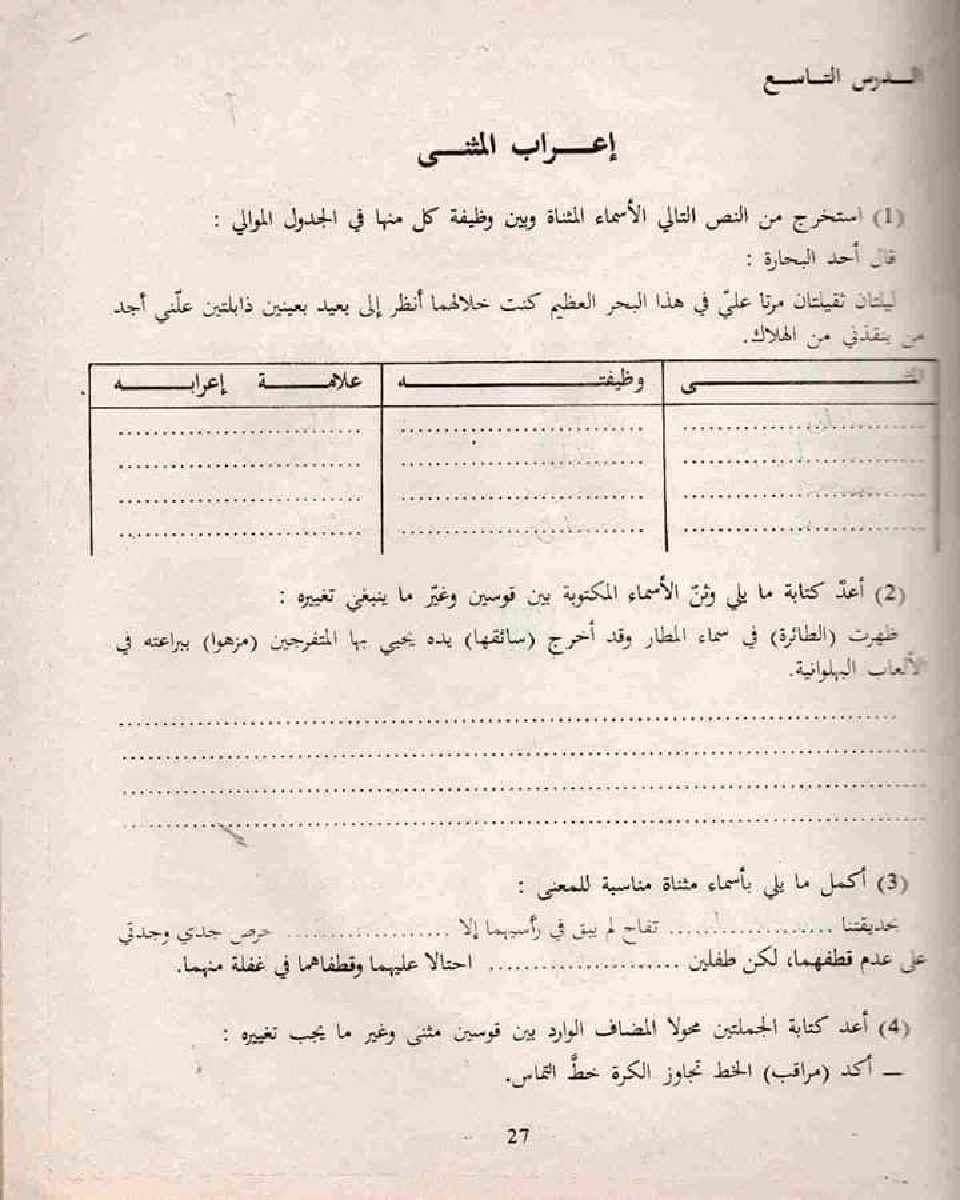 الـدرس التـاسـع
إعـراب المثنـى
(1) استخرج من النص التالي الأسماء المثناة وبين وظيفة كل منها في الجدول الموالي :
قال أحد البحارة :
ليلتان ثقيلتان مرتا عليّ في هذا البحر العظيم كنت خلالهما أنظر إلى بعيد بعينين ذابلتين علّني أجد
من ينقذني من الهلاك.
وظيفتـه علامـة إعرابـه
(2) أعدّ كتابة ما يلي وثنّ الأسماء المكتوبة بين قوسين وغيّر ما ينبغي تغييره :
ظهرت (الطائرة) في سماء المطار وقد أخرج (سائقها) يده يحيي بها المتفرجين (مزهوا) ببراعته في
الألعاب البهلوانية.
(3) أكمل ما يلي بأسماء مثناة مناسبة للمعنى :
بحديقتنا .................. تفاح لم يبق في رأسيهما إلا .................. حرص جدي وجدتي
على عدم قطفهما، لكن طفلين .................. احتالا عليهما وقطفاهما في غفلة منهما.
(4) أعد كتابة الجملتين محولا المضاف الوارد بين قوسين مثنى وغير ما يجب تغييره :
ـ أكد (مراقب) الخط تجاوز الكرة خطَّ التماس.
27